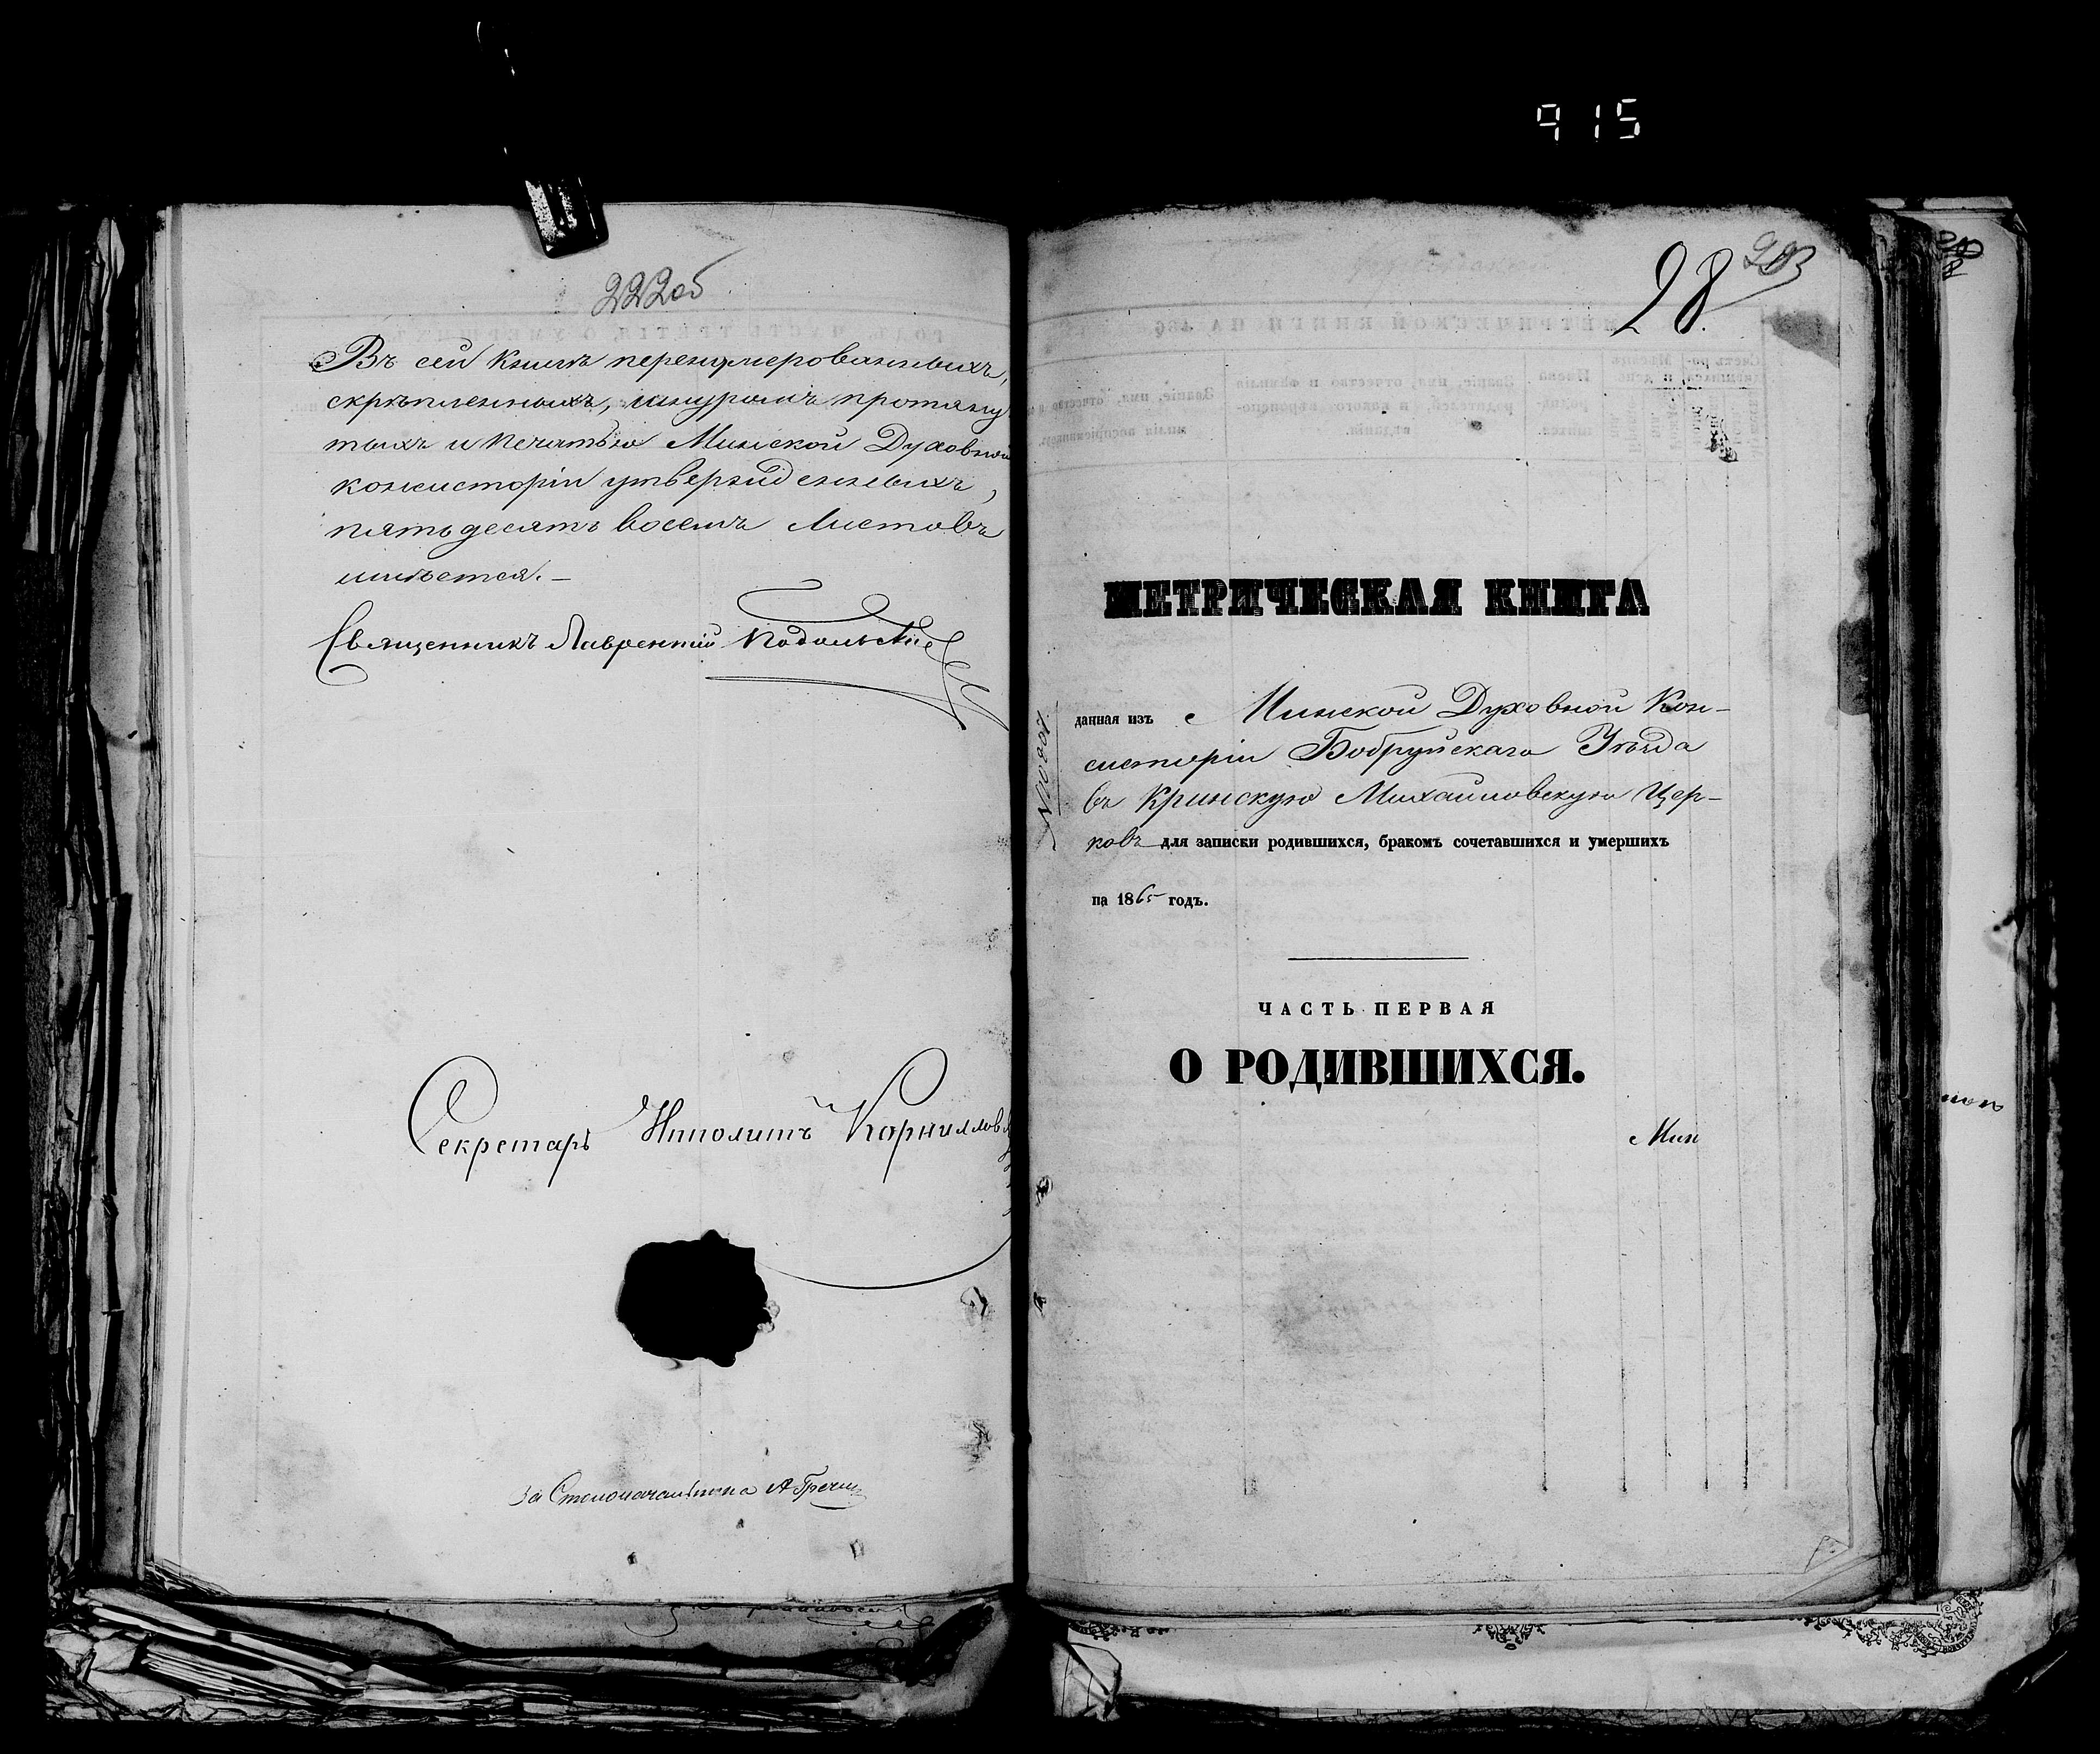 915
222об
Въ сей книгѣ перенумерованныхъ,
скрѣпленныхъ, шнуромъ протяну
тыхъ и печатью Минской Духовной
консисторіи утвержденныхъ,
пятьдесятъ восемь листовъ
имѣется. —
Священникъ Лаврентій Подольскій
Секретарь Ипполитъ Корнилловъ
За Столоначальника А Гречи
28. 223
МЕТРИЧЕСКАЯ КНИГА
данная изъ Минской Духовной Кон-
систоріи Бобруйскаго Уѣзда
въ Кринскую Михайловскую Цер-
ковь для записки родившихся, бракомъ сочетавшихся и умершихъ
на 1865 годъ.
ЧАСТЬ ПЕРВАЯ
О РОДИВШИХСЯ.
Мин